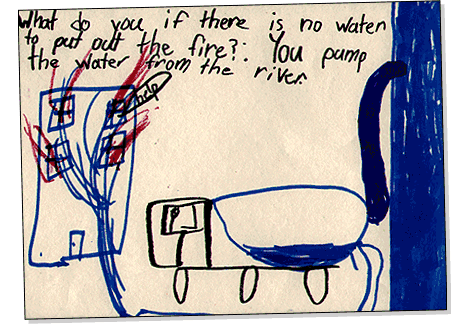 What do you if there is no water
to put out the fire?. You pump
the water from the river.
help